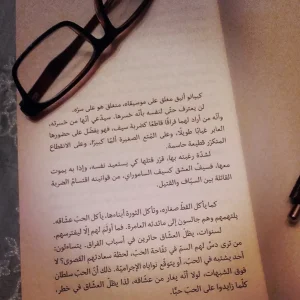 كبيانو أنيق مغلق على موسيقاه، منغلق هو على سرّه.
لن يعترف حتّى لنفسه بأنّه خسرها. سيدّعي أنّها من خسرته،
وأنّه من أراد لهما فراقًا قاطعًا كضربة سيف، فهو يفضّل على حضورها
العابر غيابًا طويلًا، وعلى المُتع الصغيرة ألمًا كبيرًا، وعلى الانقطاع
المتكرّر قطيعة حاسمة.
لشدّة رغبته بها، قرّر قتلها كي يستعيد نفسه، وإذا به يموت
معها، فسيف العشق كسيف الساموراي، من قوانينه اقتسام الضربة
القاتلة بين السيّاف والقتيل.
كما يأكل القطّ صغاره، وتأكل الثورة أبناءها، يأكل الحبّ عشّاقه.
يلتهمهم وهم جالسون إلى مائدته العامرة. فما أولمَ لهم إلّا ليفترسهم.
لسنوات، يظلّ العشّاق حائرين في أسباب الفراق. يتساءلون:
من ترى دسّ لهم السمّ في تفّاحة الحبّ، لحظة سعادتهم القصوى؟ لا
أحد يشتبه في الحبّ، أو يتوقّع نواياه الإجراميّة. ذلك أنّ الحبّ سلطان
فوق الشبهات، لولا أنّه يغار من عشّاقه، لذا يظلّ العشّاق في خطر،
كلّما زايدوا على الحبّ حبًّا.